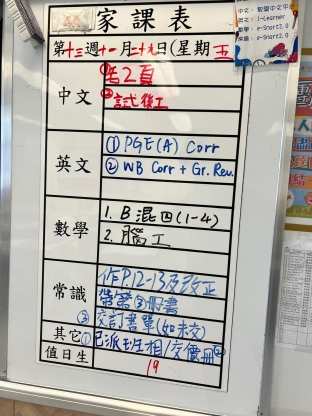 家課表
第十三週十一月二十九日(星期五
中文
①活2頁
②試後工
英文
① PGE(A) Corr
② WB Corr + Gr. Rev.
數學
1. B混四(1-4)
2. 腦工
常識
作P.12-13及改正
帶常③冊書
③交訂書單(如未交)
其它
①已派班相/交價冊②
值日生
19
英文: i-Learner
數學: e-Smart2.0
常識: e-Smart2.0